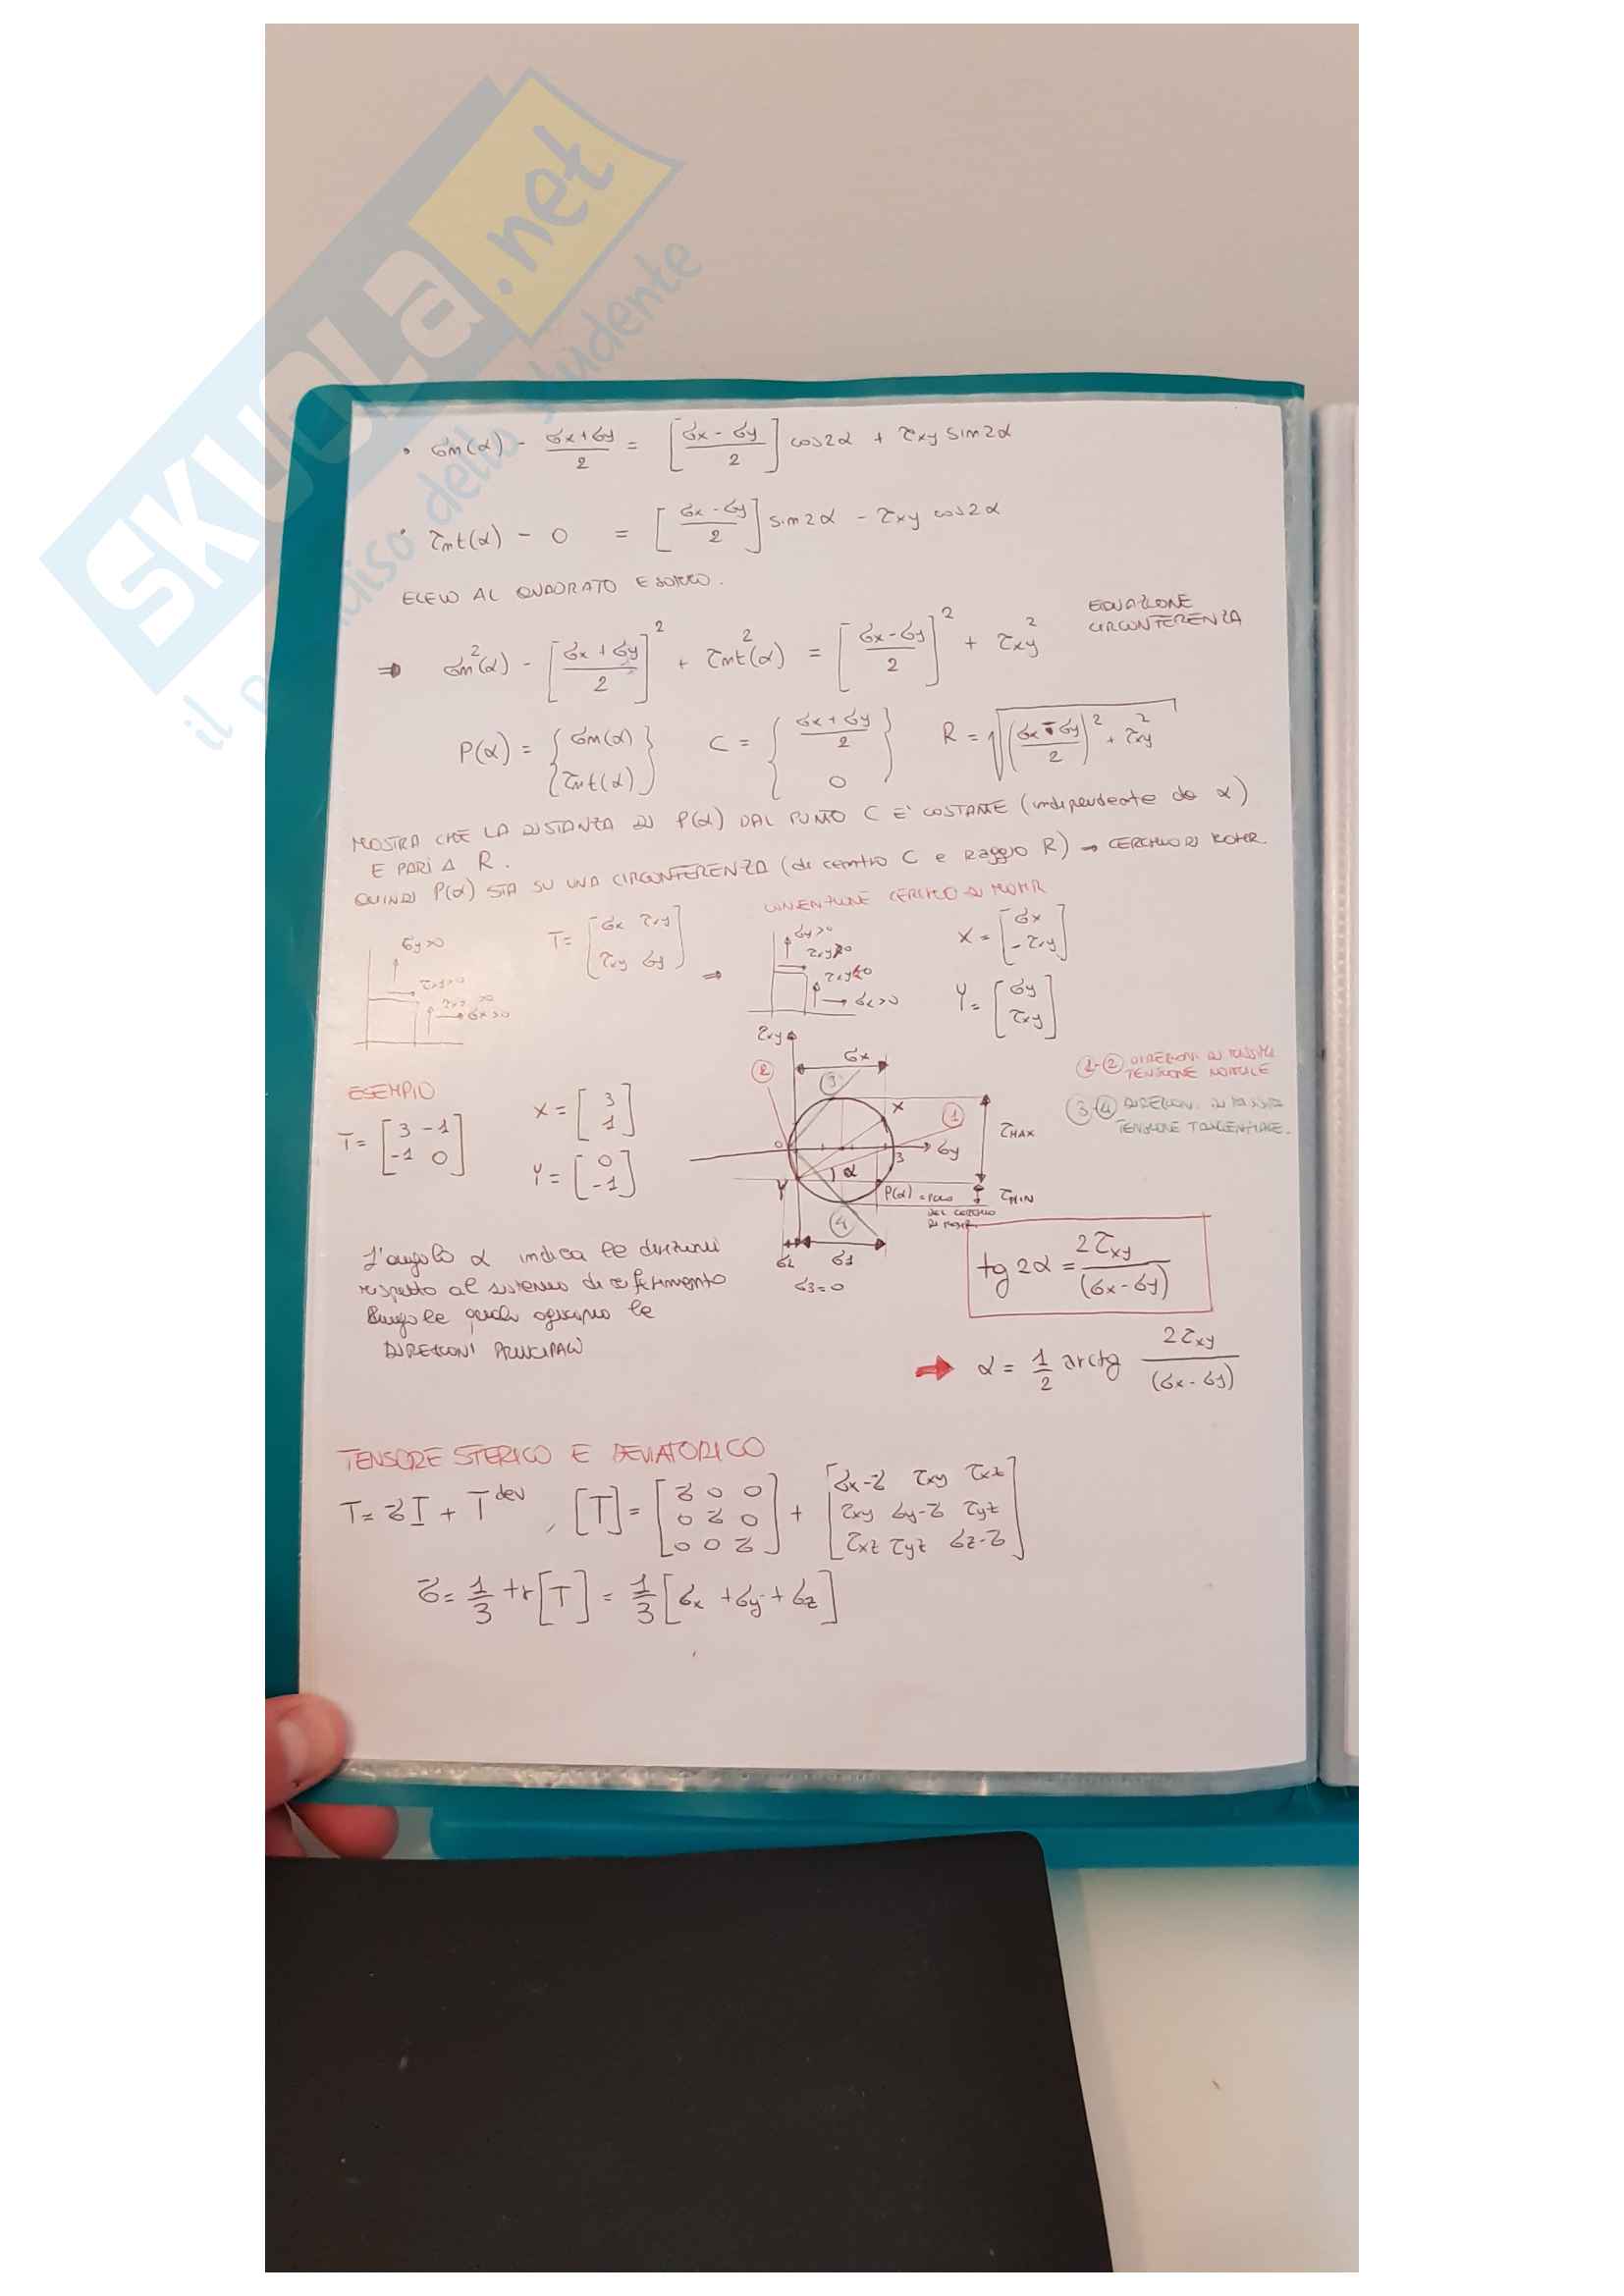 SKUOLA.net
il paradiso dello studente
• σn(α) - (σx+σy)/2 = [(σx-σy)/2] cos2α + τxy sin2α
• τnt(α) - 0 = [(σx-σy)/2] sin2α - τxy cos2α
ELEVO AL QUADRATO E SOMMO.
EQUAZIONE
CIRCONFERENZA
⇒ σn²(α) - [(σx+σy)/2]² + τnt²(α) = [(σx-σy)/2]² + τxy²
P(α) = {σn(α) τnt(α)} C = {(σx+σy)/2 0} R = √(((σx-σy)/2)² + τxy²)
MOSTRA CHE LA DISTANZA DI P(α) DAL PUNTO C E' COSTANTE (independente da α)
E PARI A R.
QUINDI P(α) STA SU UNA CIRCONFERENZA (di centro C e Raggio R) → CERCHIO DI MOHR.
CONVENZIONE CERCHIO DI MOHR
T= [σx τxy
τxy σy] ⇒
σy>0
τxy>0
τxy>0
σx>0
σy>0
τxy>0
τxy<0
σx>0
X = [σx
-τxy]
Y= [σy
τxy]
ESEMPIO
T= [3 -1
-1 0]
X= [3
1]
Y= [0
-1]
τxy
σx
2
3
X
1
0
3
σy
α
Y
P(α) = POLO
DEL CERCHIO
DI MOHR
4
τMAX
τMIN
σ2 σ1
σ3=0
1-2 DIREZIONI DI
TENSIONE NORMALE
3-4 DIREZIONI DI
TENSIONE TANGENZIALE.
L'angolo α indica le direzioni
rispetto al sistema di riferimento
lungo le quali agiscono le
DIREZIONI PRINCIPALI
tg2α = 2τxy/(σx-σy)
→ α = 1/2 arctg 2τxy/(σx-σy)
TENSORE SFERICO E DEVIATORICO
T= σ̄I + T^dev , [T]= [σ̄ 0 0
0 σ̄ 0
0 0 σ̄] + [σx-σ̄ τxy τxz
τxy σy-σ̄ τyz
τxz τyz σz-σ̄]
σ̄= 1/3 tr[T] = 1/3 [σx +σy+σz]